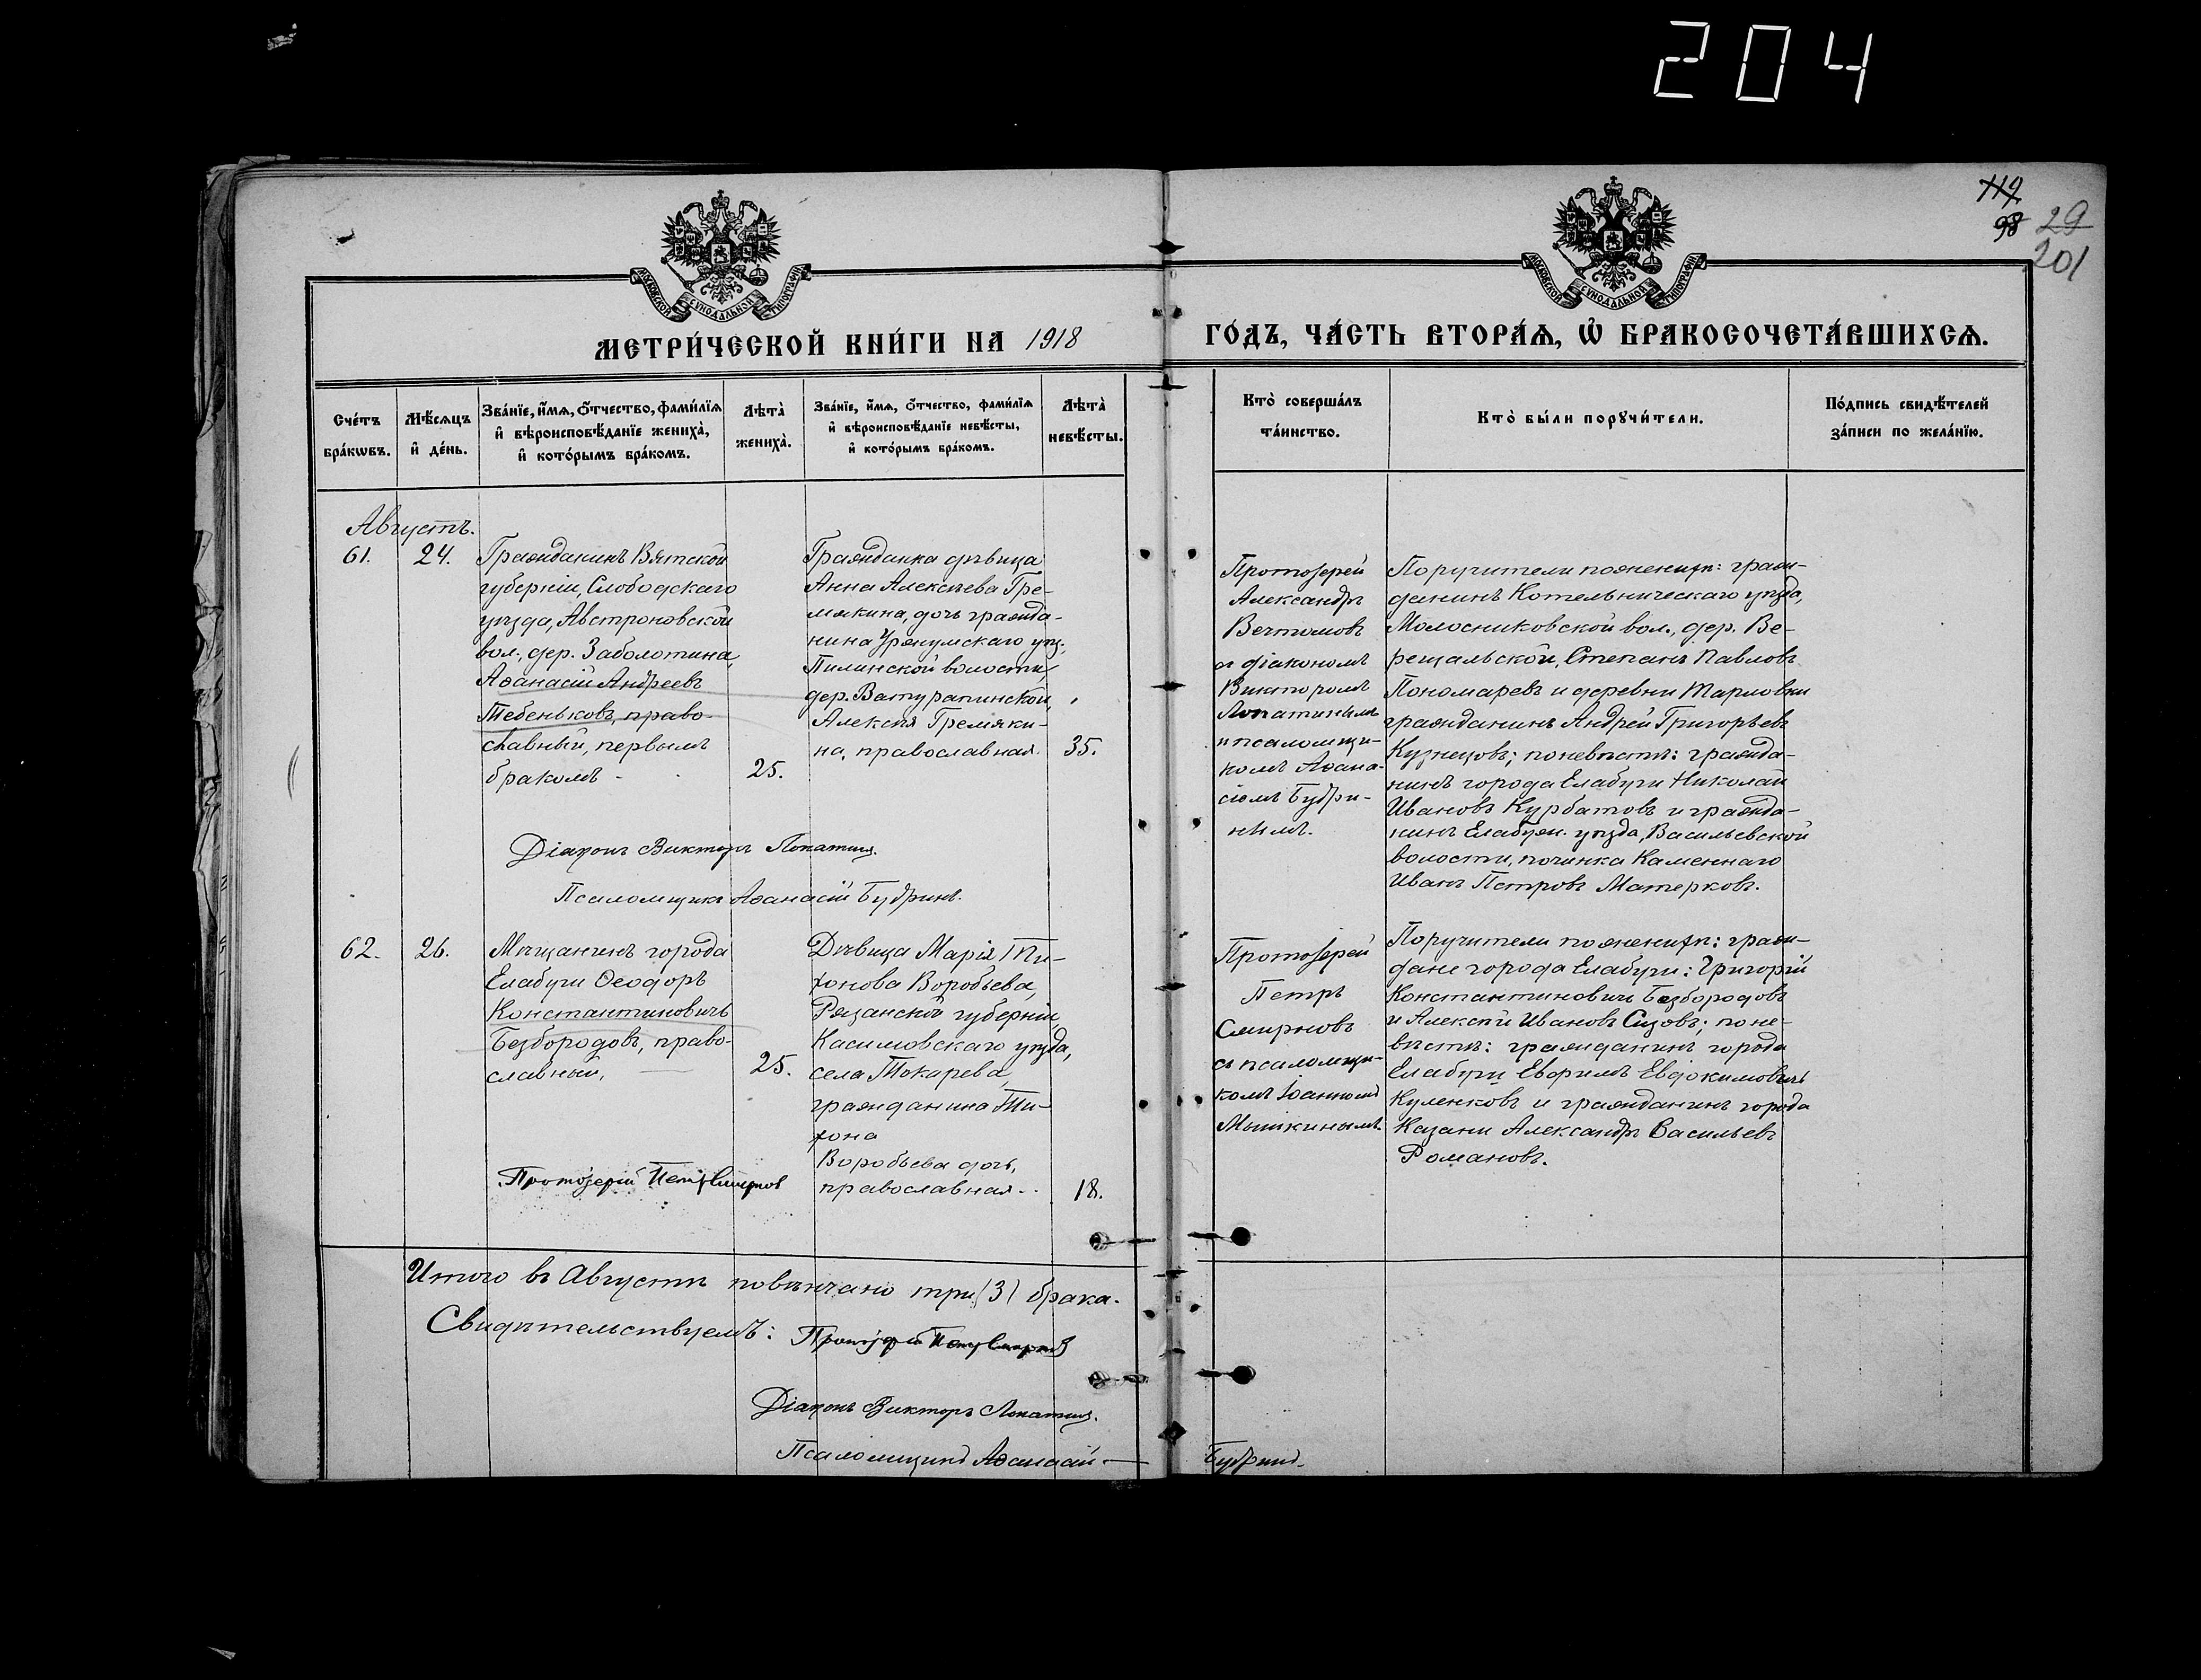 204
119
98 29
201
МОСКОВСКОЙ СѴНОДАЛЬНОЙ ТИПОГРАФІИ
МОСКОВСКОЙ СѴНОДАЛЬНОЙ ТИПОГРАФІИ
МЕТРИ́ЧЕСКОЙ КНИ́ГИ НА 1918
ГО́ДЪ, ЧА́СТЬ ВТОРА́Ѧ, Ѡ҆ БРАКОСОЧЕТА́ВШИХСѦ.
Сче́тъ
бра́кѡвъ.
Мѣ́сѧцъ
и҆ де́нь.
Зва́нїе, и҆́мѧ, ѻ҆́тчество, фами́лїѧ
и҆ вѣроисповѣ́данїе жениха̀,
и҆ кото́рымъ бра́комъ.
Лѣта̀
жениха̀.
Зва́нїе, и҆́мѧ, ѻ҆́тчество, фами́лїѧ
и҆ вѣроисповѣ́данїе невѣ́сты,
и҆ кото́рымъ бра́комъ.
Лѣта̀
невѣ́сты.
Кто̀ соверша́лъ
та́инство.
Кто̀ бы́ли порꙋчи́тели.
По́дпись свидѣ́телей
за́писи по жела́нїю.
Августъ.
61.
24.
Гражданинъ Вятской
губерніи, Слободскаго
уѣзда, Австроновской
вол., дер. Заболотина,
Аѳанасій Андреевъ
Тебеньковъ, право-
славный, первымъ
бракомъ -
25.
Гражданка дѣвица
Анна Алексѣева Гре-
мякина, дочь гражда-
нина Уржумскаго уѣз.
Пилинской волости,
дер. Ватурапинской,
Алексѣя Гремяки-
на, православная.
35.
Протоіерей
Александръ
Вечтомовъ
съ діакономъ
Викторомъ
Лопатинымъ
и псаломщи-
комъ Аѳана-
сіемъ Будри-
нымъ.
Поручители по женихѣ: граж-
данинъ Котельническаго уѣзда,
Молосниковской вол., дер. Ве-
рещальской, Степанъ Павловъ
Пономаревъ и деревни Тарловки
гражданинъ Андрей Григорьевъ
Кузнецовъ; по невѣстѣ: гражда-
нинъ города Елабуги Николай
Ивановъ Курбатовъ и гражда-
нинъ Елабуж. уѣзда, Васильевской
волости, починка Каменнаго
Иванъ Петровъ Матерковъ.
Діаконъ Викторъ Лопатинъ.
Псаломщикъ Аѳанасій Будринъ.
62.
26.
Мѣщанинъ города
Елабуги Ѳеодоръ
Константиновичъ
Безбородовъ, право-
славный,
25.
Дѣвица Марія Ти-
хонова Воробьева,
Рязанской губерніи,
Касимовскаго уѣзда,
села Токарева,
гражданина Ти-
хона
Воробьева дочь,
православная.
18.
Протоіерей
Петръ
Смирновъ
съ псаломщи-
комъ Іоанномъ
Мышкинымъ.
Поручители по женихѣ: граж-
дане города Елабуги: Григорій
Константиновичъ Безбородовъ
и Алексѣй Ивановъ Сизовъ; по не-
вѣстѣ: гражданинъ города
Елабуги Ефримъ Евдокимовичъ
Куленковъ и гражданинъ города
Казани Александръ Васильевъ
Романовъ.
Протоіерей Петръ Смирновъ
Итого въ Августѣ повѣнчано три (3) брака.
Свидѣтельствуемъ: Протоіерей Петръ Смирновъ
Діаконъ Викторъ Лопатинъ.
Псаломщикъ Аѳанасій — Будринъ.